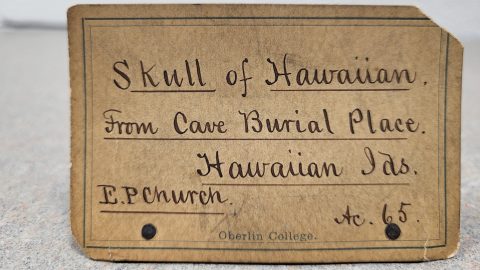 Skull of Hawaiian.
From Cave Burial Place.
Hawaiian Ids.
E.P Church.
Ac. 65.
Oberlin College.